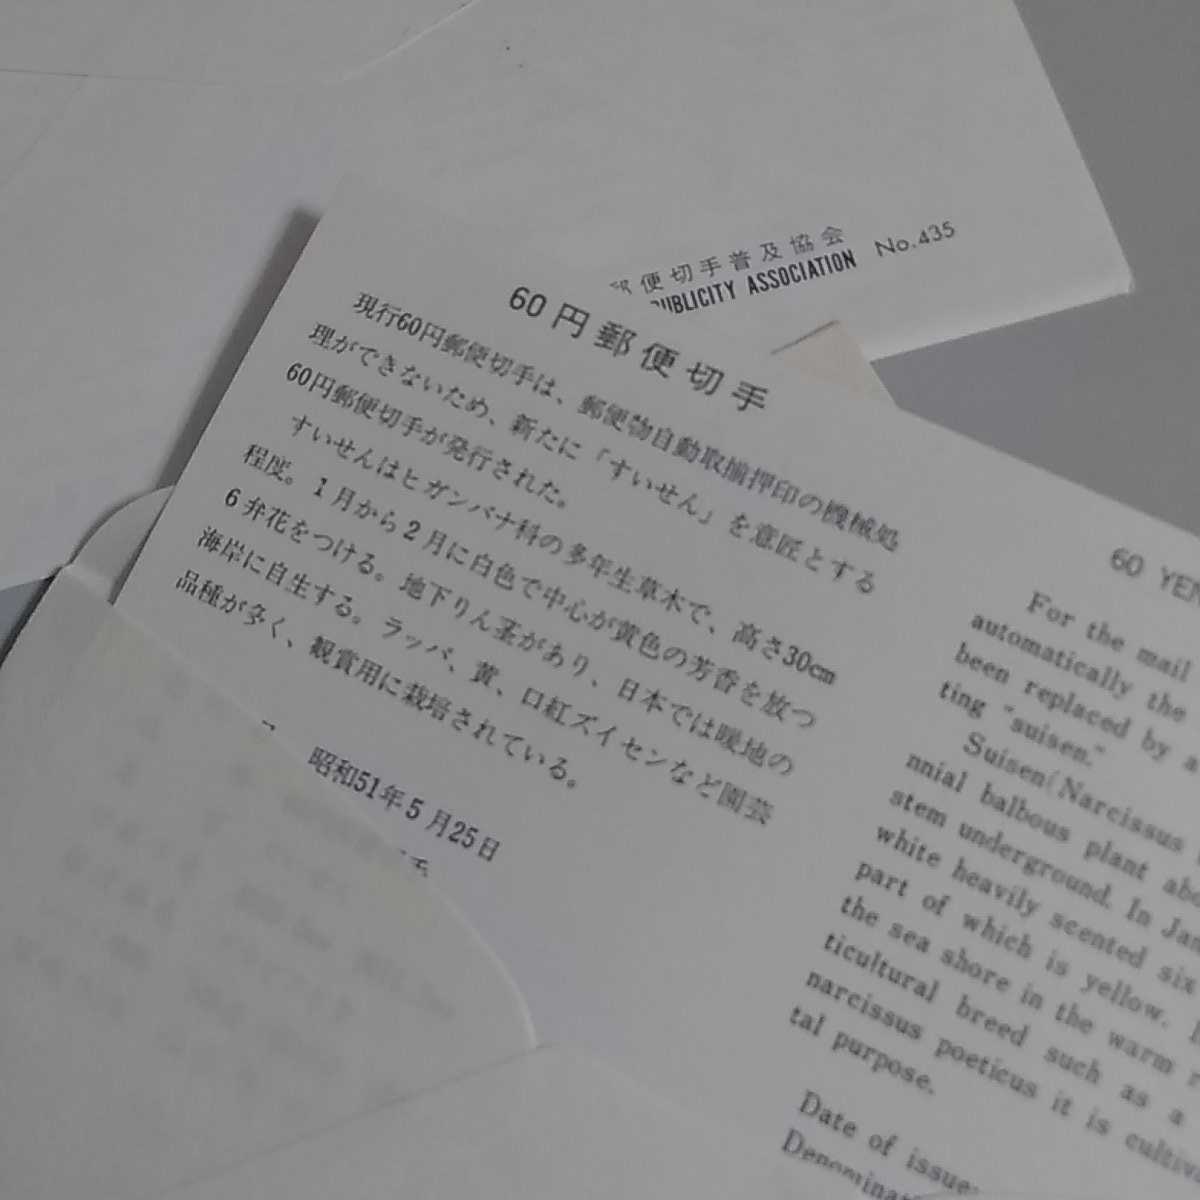 郵便切手普及協会
PUBLICITY ASSOCIATION No.435
60円郵便切手
現行60円郵便切手は、郵便物自動取揃押印の機械処
理ができないため、新たに「すいせん」を意匠とする
60円郵便切手が発行された。
すいせんはヒガンバナ科の多年生草木で、高さ30cm
程度。1月から2月に白色で中心が黄色の芳香を放つ
6弁花をつける。地下りん茎があり、日本では暖地の
海岸に自生する。ラッパ、黄、口紅ズイセンなど園芸
品種が多く、観賞用に栽培されている。
昭和51年5月25日
60 YEN
For the mail
automatically the
been replaced by a
ting "suisen."
Suisen(Narcissus
nnial balbous plant abo
stem underground. In Jan
white heavily scented six
part of which is yellow.
the sea shore in the warm r
ticultural breed such as a
narcissus poeticus it is cultiva
tal purpose.
Date of issue:
Denominat